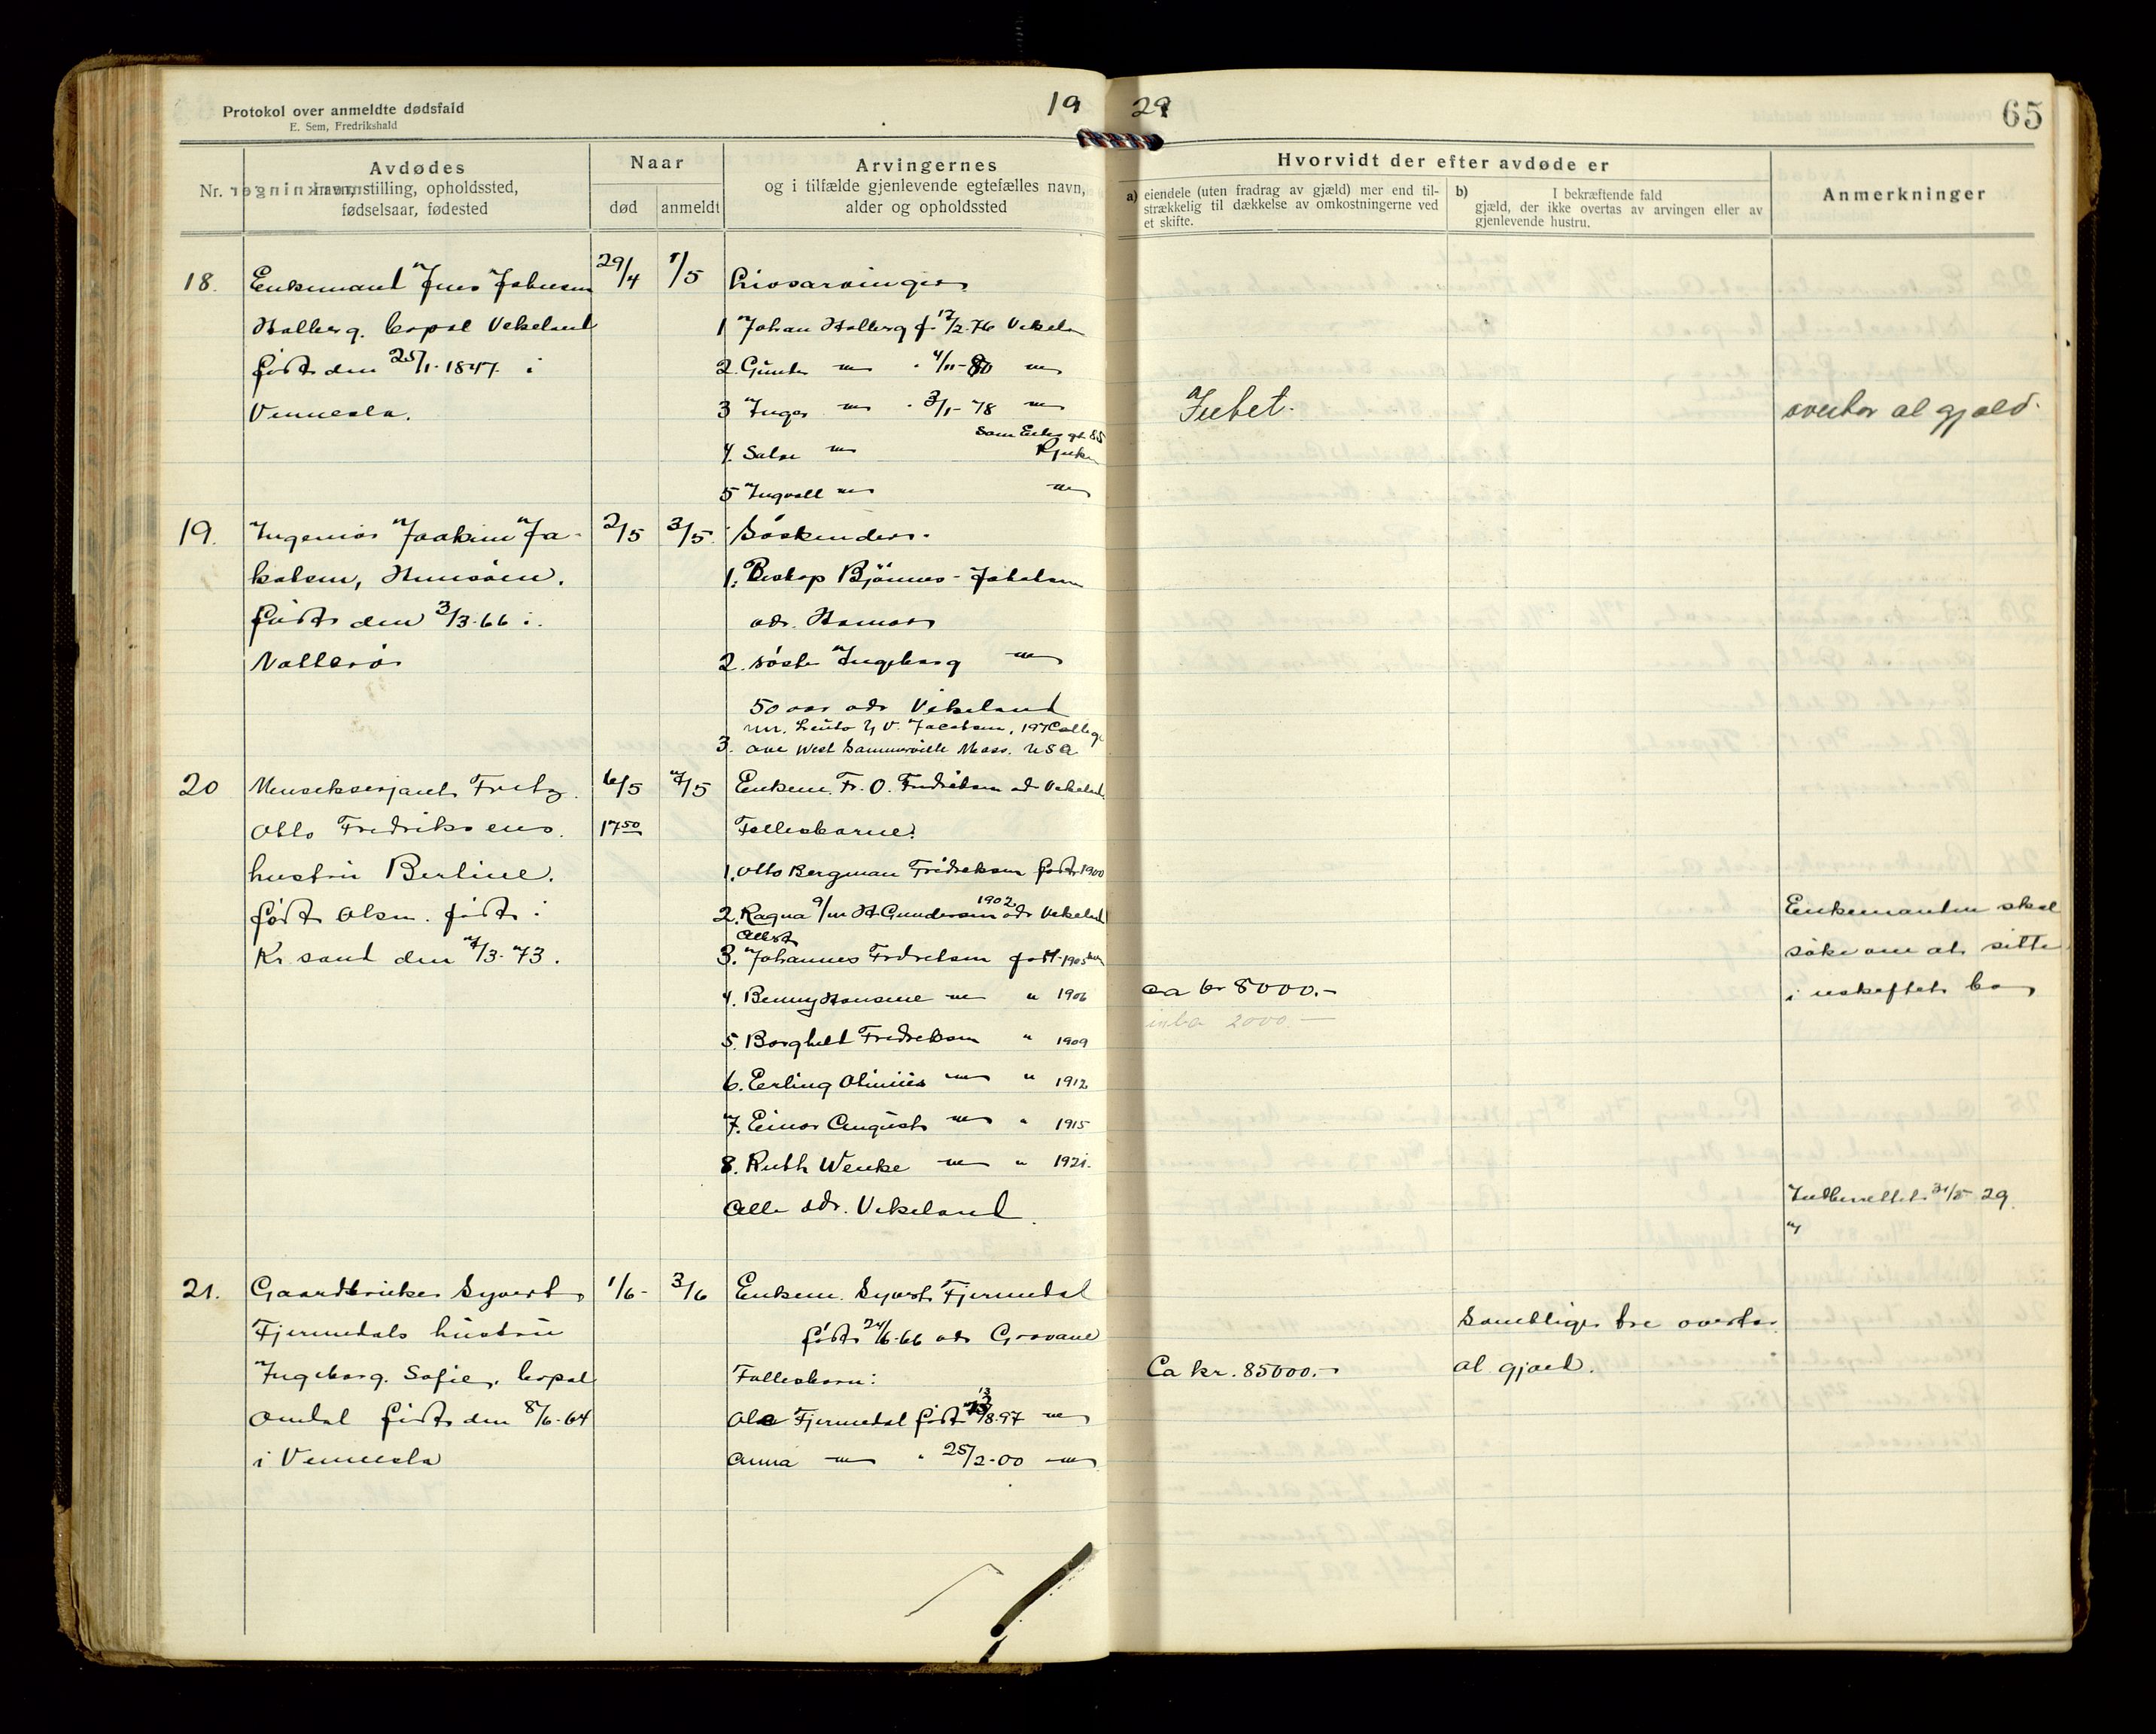 Protokol over anmeldte dødsfald
E. Sem, Fredrikshald
19 29
65
Nr.
Avdødes
navn, stilling, opholdssted,
fødselsaar, fødested
Naar
død
anmeldt
Arvingernes
og i tilfælde gjenlevende egtefælles navn,
alder og opholdssted
Hvorvidt der efter avdøde er
a) eiendele (uten fradrag av gjæld) mer end til-
strækkelig til dækkelse av omkostningerne ved
et skifte.
b) I bekræftende fald
gjæld, der ikke overtas av arvingen eller av
gjenlevende hustru.
Anmerkninger
18.
Enkemand Jens Johnsen
Holberg. bopel Vikeland
født den 25/1-1847. i
Vennesla.
29/4
1/5
Livsarvinger
1 Johan Holberg f. 12/2-76
2. Gunder — " 4/11-80 —
3 Inger — " 3/1-78 —
4. Salve — Rjukan
5 Ingvald — —
Intet.
overtar al gjæld.
19.
Ingeniør Joakim Ja-
kobsen, Hunsøen.
født den 3/3-66 i
2/5
3/5.
Søskender.
1. Biskop Bjønnes-Jakobsen
adr. Hamar
2. søster Ingeborg —
50 aar adr Vikeland
3. ave West Sommerville Mass. USA
20
Musiksersjant Fritz
Otto Fredriksens.
hustru Berline.
født Olsen. født i
Kr. sand den 7/3-73.
6/5
17 50
7/5
Enkem. Fr. O. Fredriksen adr Vikeland.
Fellesbarn:
1. Otto Bergman Fredriksen født 1900
2. Ragna g/m H. Gundersen 1902 adr Vikeland
3. Johannes Fredriksen født 1905
4. Benny Hansine — " 1906
5. Borghild Fredriksen " 1909
6. Erling Olinius — " 1912
7. Einar August — " 1915
8. Ruth Wenke — " 1921.
Alle adr. Vikeland.
ca kr 8000.-
inbo 2000 —
Enkemanden skal
søke om at sitte
i uskiftet bo
Indberettet 31/5 29.
21.
Gaardbruker Syvert
Fjermedals hustru
Ingeborg Sofie, bopel
Omdal født den 8/6-64
i Vennesla
1/6-
3/6
Enkem. Syvert Fjermedal
født 24/6-66 adr Grovane
Fellesbarn:
Ole Fjermedal født 13/8.97 —
Anna — " 25/2-00 —
Ca kr. 85000.-
Samtlige tre overtar
al gjæld.